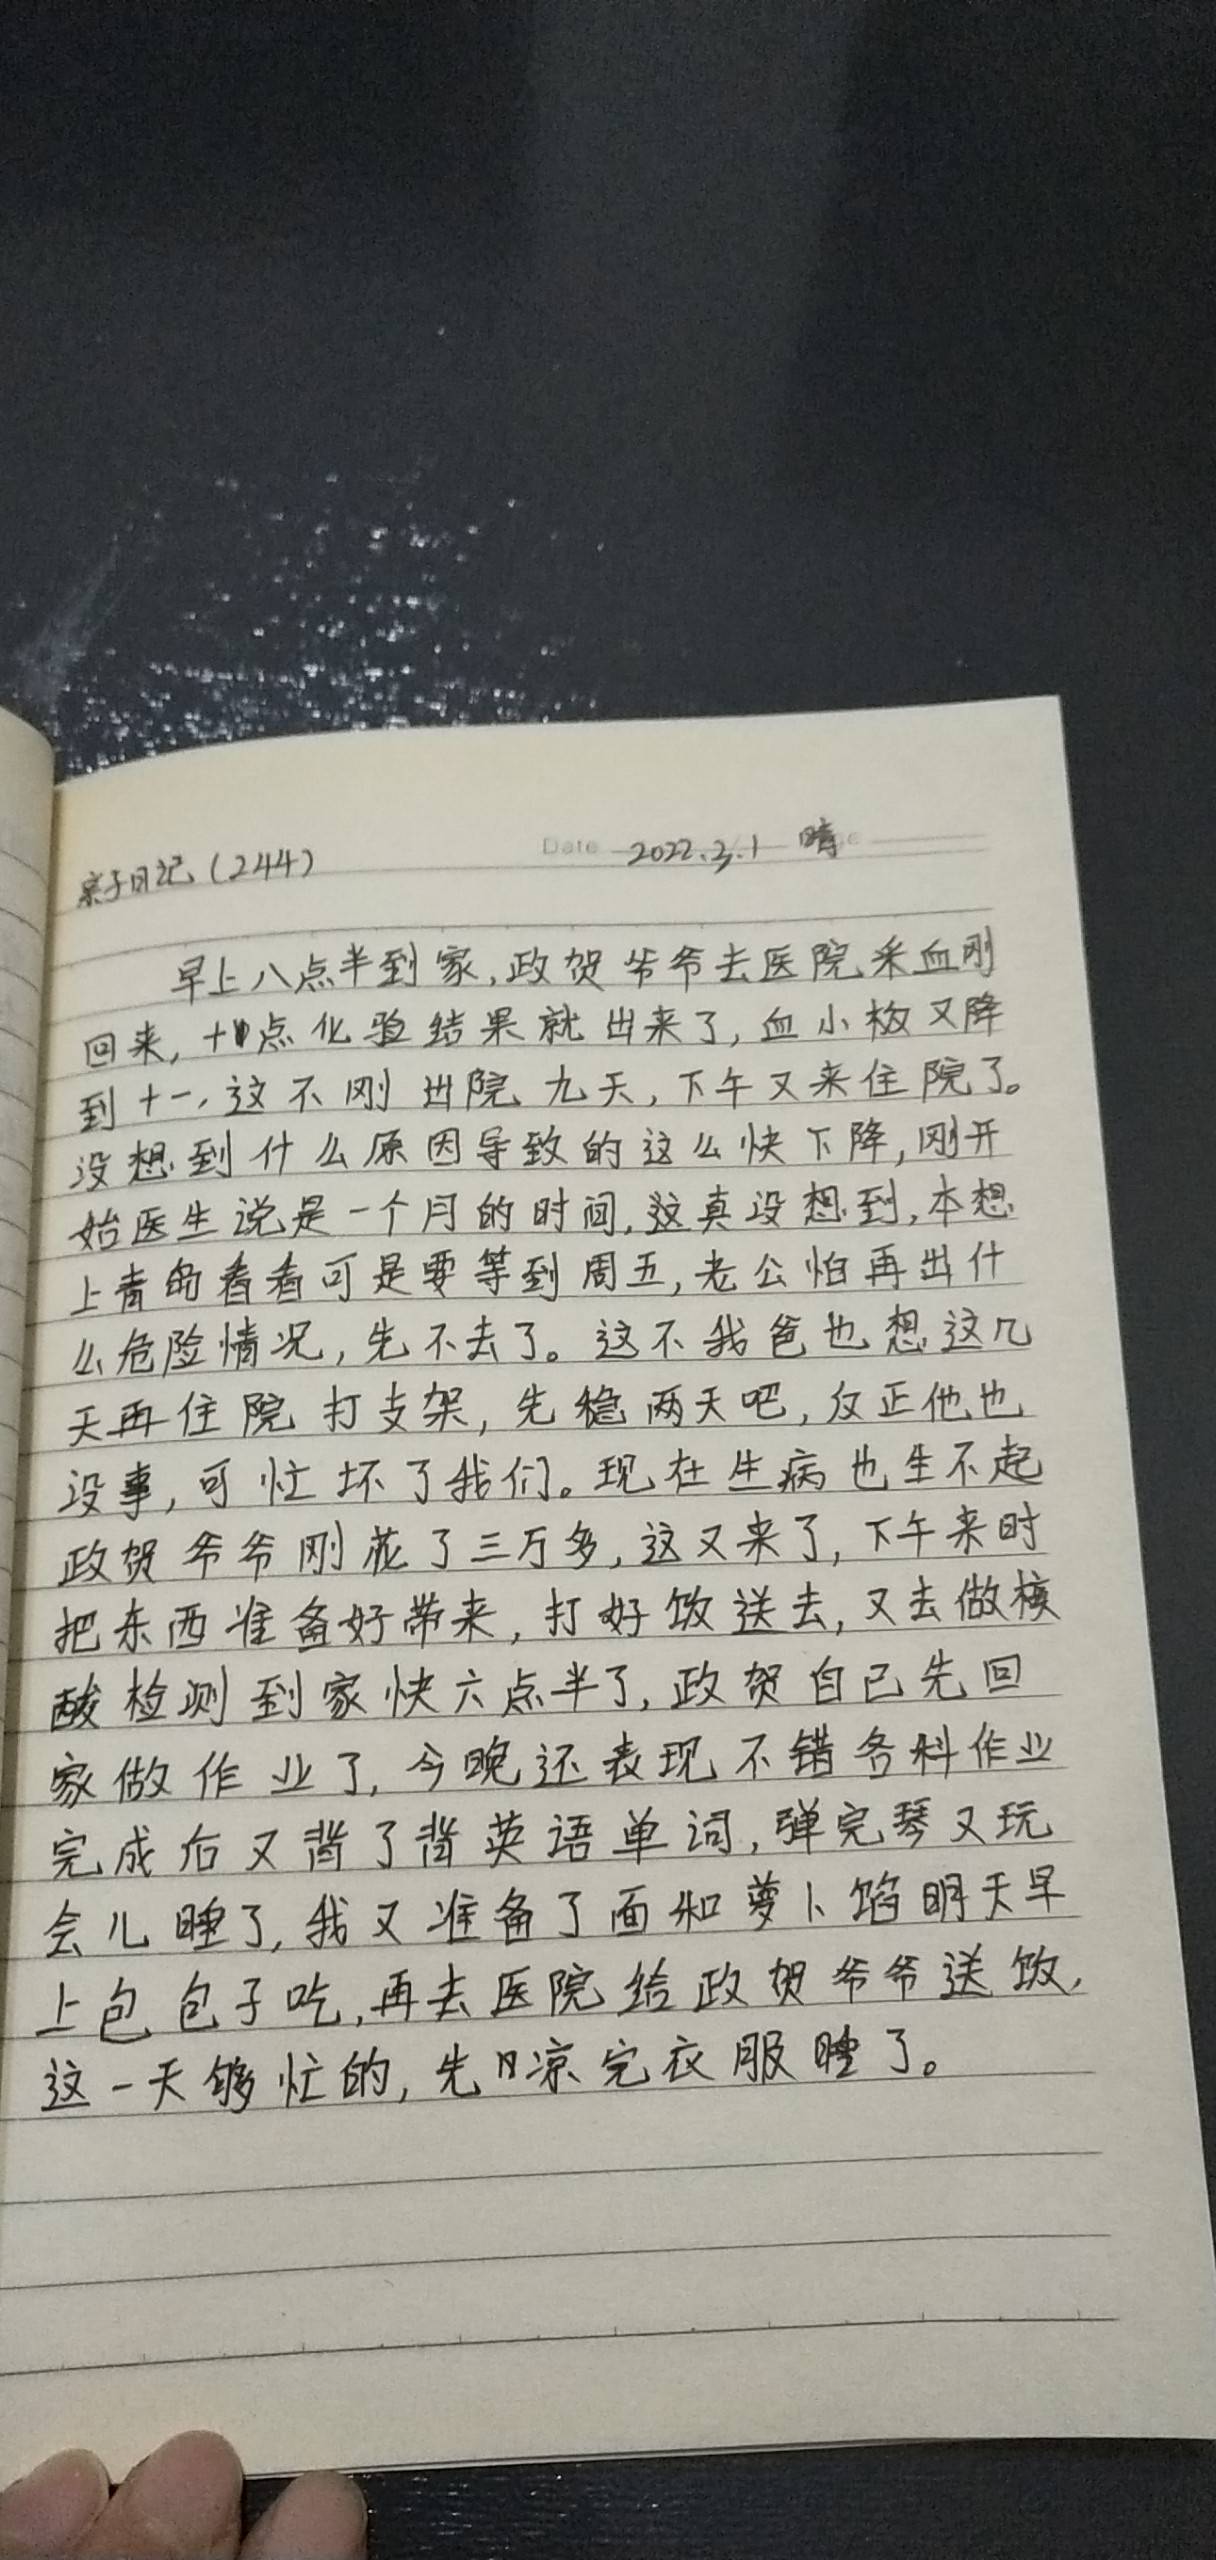 亲子日记(244)
Date 2022.3.1 晴
早上八点半到家,政贺爷爷去医院采血刚
回来,十点化验结果就出来了,血小板又降
到十一,这不刚出院九天,下午又来住院了。
没想到什么原因导致的这么快下降,刚开
始医生说是一个月的时间,这真没想到,本想
上青岛看看可是要等到周五,老公怕再出什
么危险情况,先不去了。这不我爸也想这几
天再住院打支架,先稳两天吧,反正他也
没事,可忙坏了我们。现在生病也生不起
政贺爷爷刚花了三万多,这又来了,下午来时
把东西准备好带来,打好饭送去,又去做核
酸检测到家快六点半了,政贺自己先回
家做作业了,今晚还表现不错各科作业
完成后又背了背英语单词,弹完琴又玩
会儿睡了,我又准备了面和萝卜馅明天早
上包包子吃,再去医院给政贺爷爷送饭,
这一天够忙的,先晾完衣服睡了。